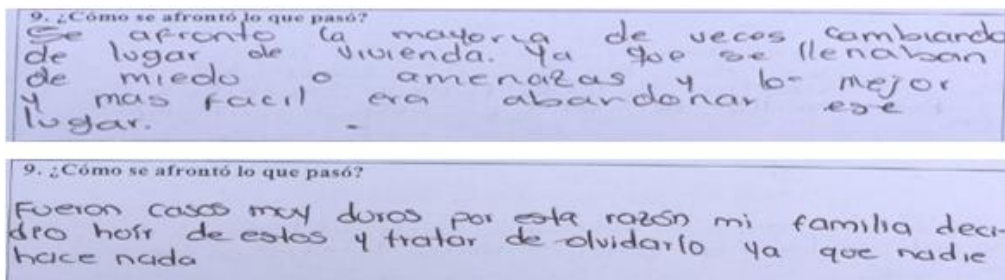 9. ¿Cómo se afrontó lo que pasó?
Se afronto la mayoria de veces cambiando
de lugar de vivienda. Ya que se llenaban
de miedo o amenazas y lo mejor
y mas facil era abandonar ese
lugar.
9. ¿Cómo se afrontó lo que pasó?
Fueron casos muy duros por esta razón mi familia deci-
dio huir de estos y tratar de olvidarlo ya que nadie
hace nada